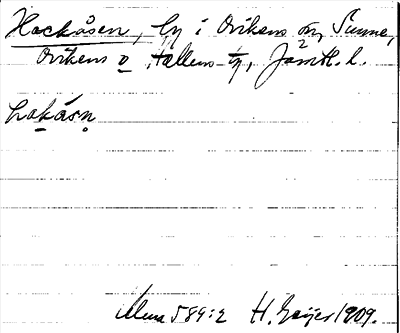 Hackåsen, by i Ovikens sn, Sunne,
Ovikens o Hallens tg, Jämtl. l.
hakåsn
589:2 H. Geijer 1909.